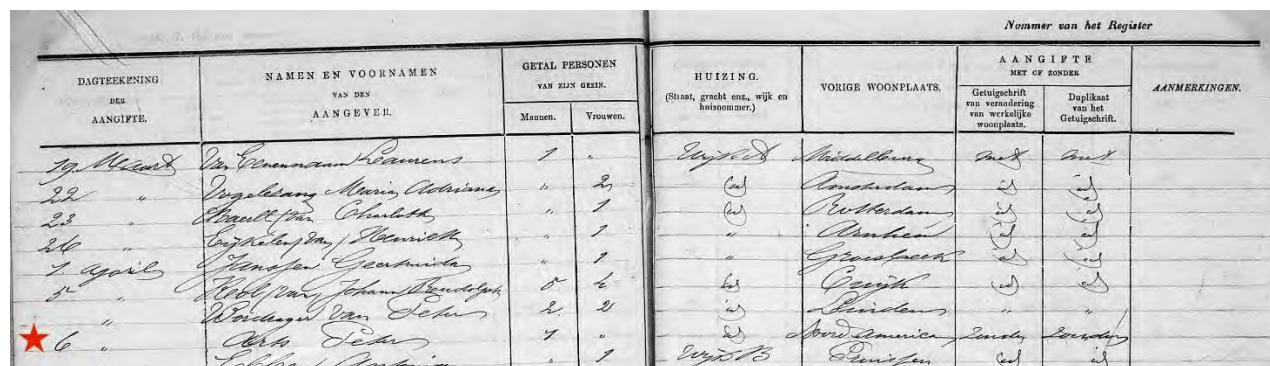 Nommer van het Register
DAGTEEKENING DER AANGIFTE. NAMEN EN VOORNAMEN VAN DEN AANGEVER. GETAL PERSONEN VAN ZIJN GEZIN. Mannen. Vrouwen. HUIZING. (Straat, gracht enz., wijk en huisnommer.) VORIGE WOONPLAATS. AANGIFTE MET OF ZONDER Getuigschrift van verandering van werkelijke woonplaats. Duplikaat van het Getuigschrift. AANMERKINGEN.
19 Maart Van Eenennaam Laurens 1 " Wijk A Middelburg met met
22 " Vogelesang Maria Adriana " 2 (id) Amsterdam id id
23 " van Charlotte " 1 (id) Rotterdam id id
26 " van " 1 " Arnhem id id
1 April Janssen Geertruida " 1 " Groesbeek id id
5 " van Johann Rendolph 5 4 id Cuijk id id
" van Peter 2 2 id Linden " "
6 " Arts Peter 1 " id Noord America zonder zonder
" 1 Wijk B id id